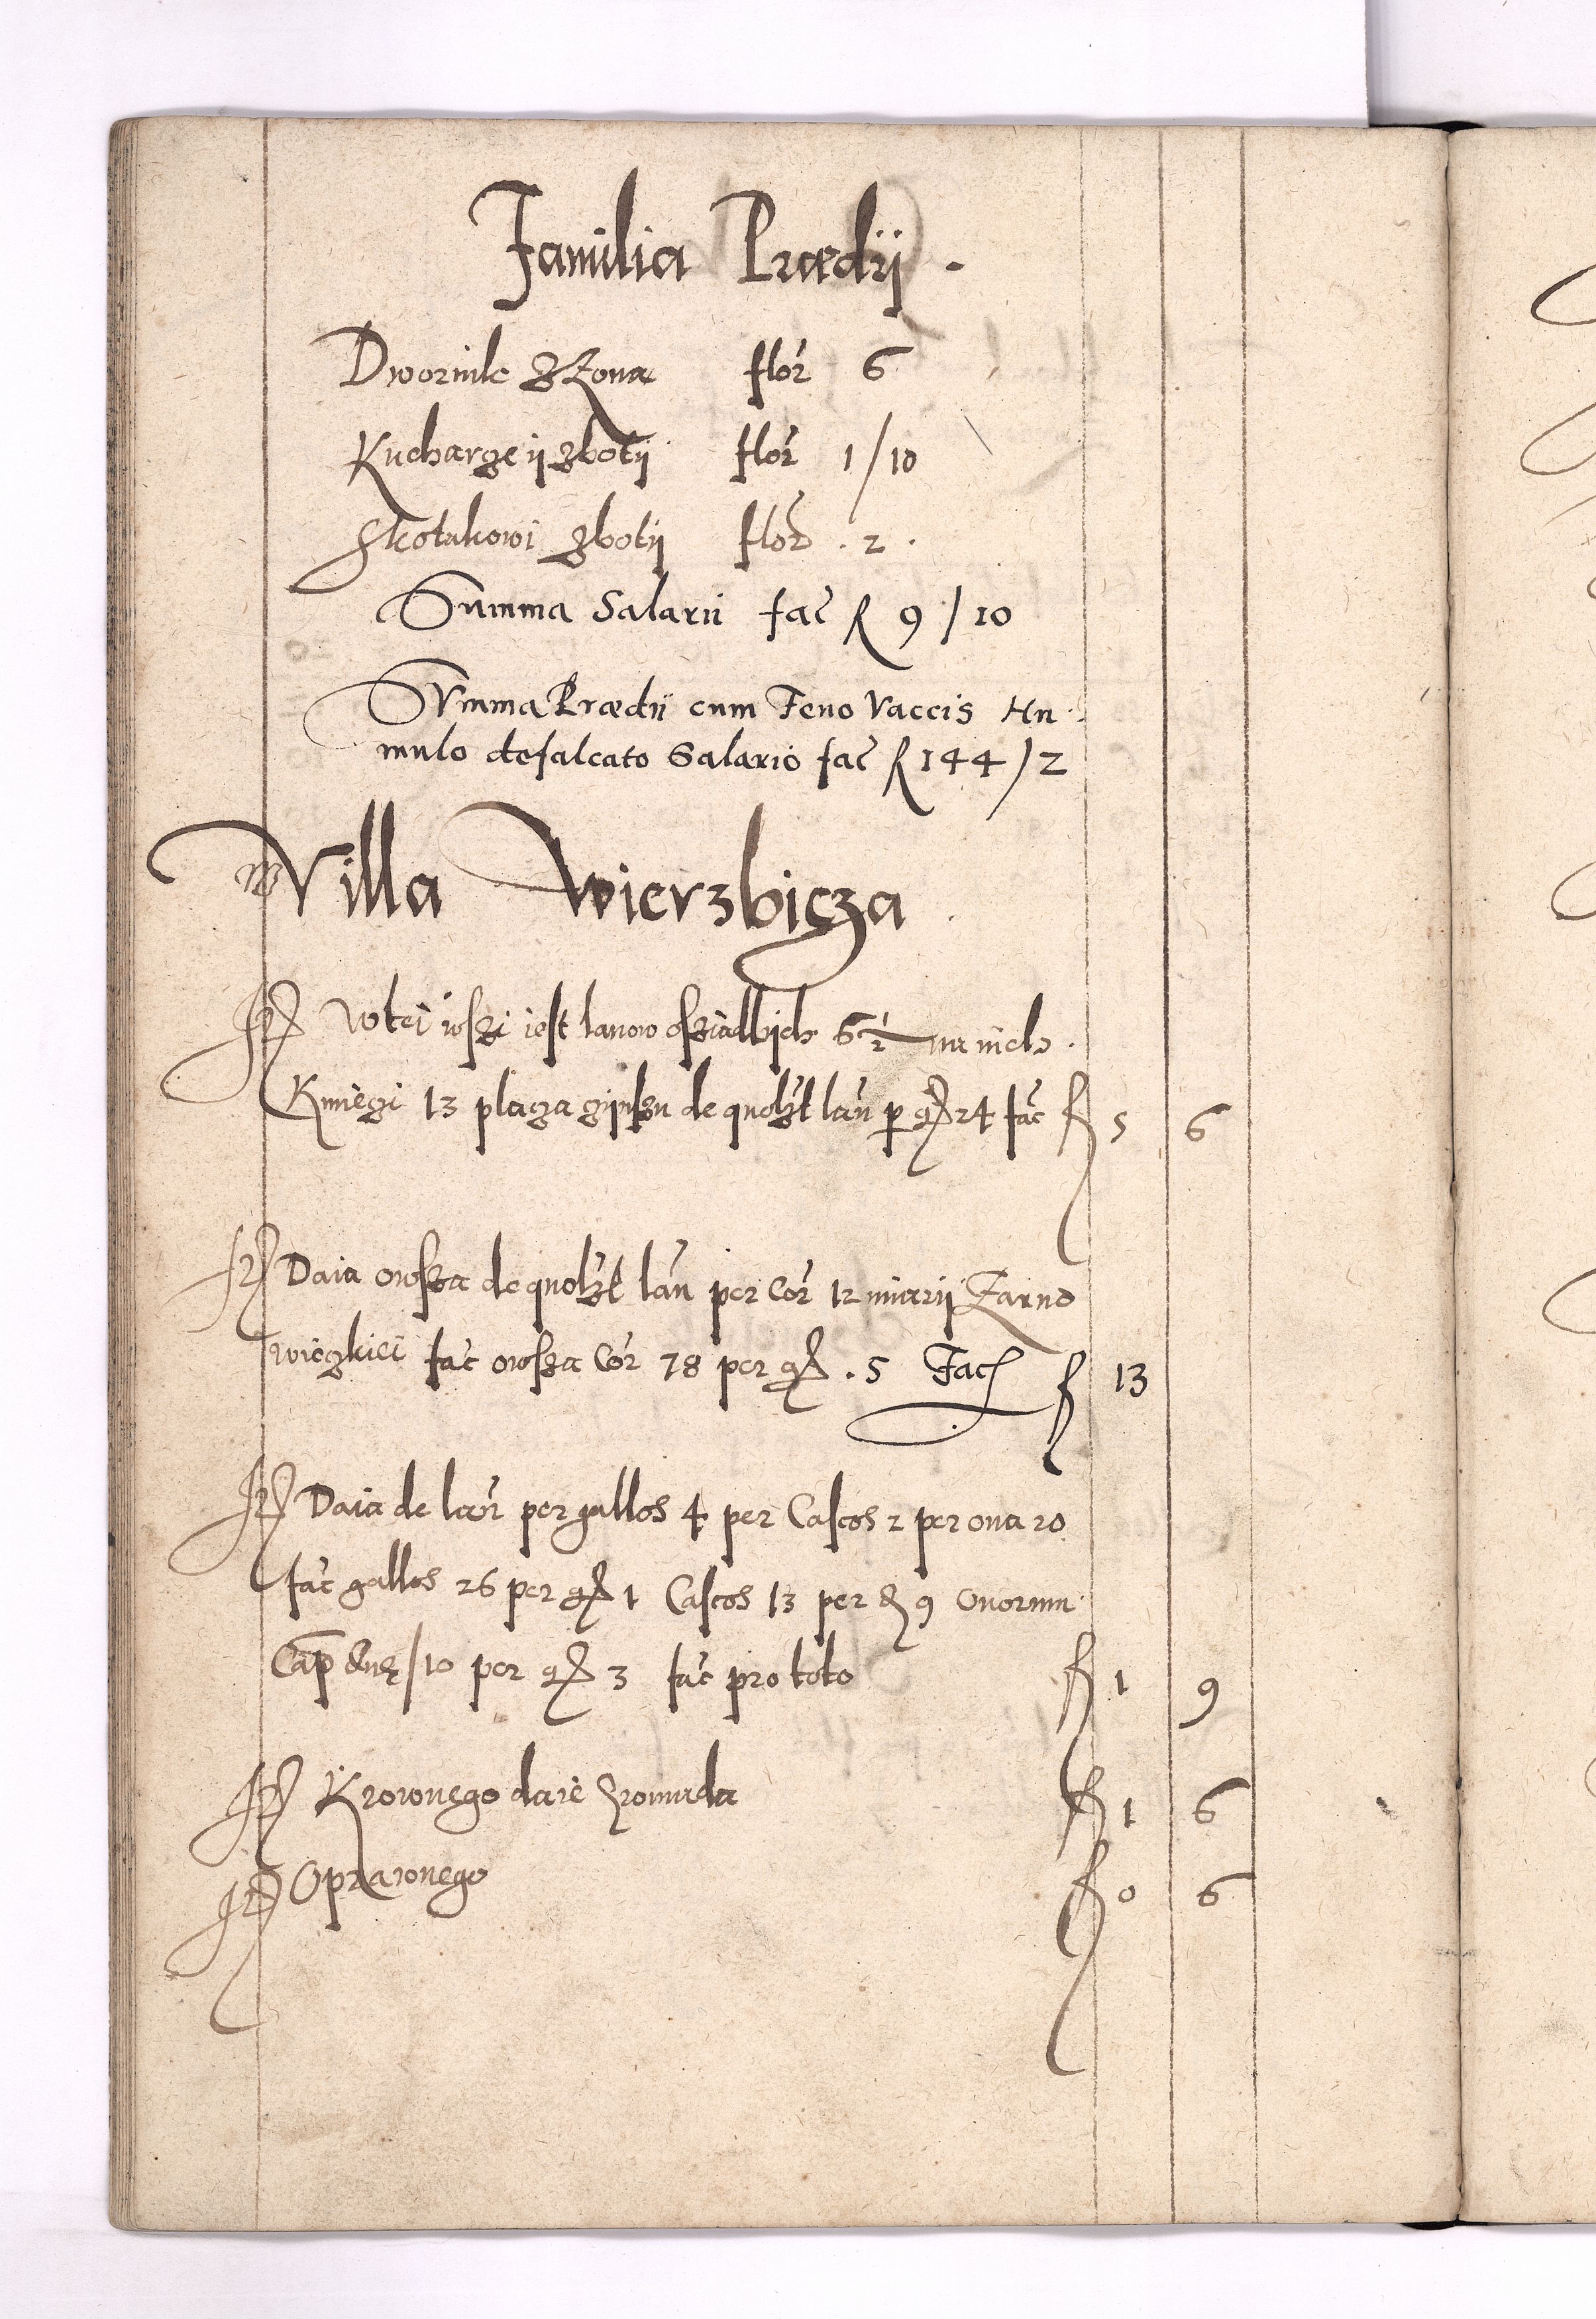 Familia Prædij .
Dwornik zZona flor 6
Kucharge ij zbotij flor 1/10
Skotakowi zbotij flor . 2 .
Summa Salarii fac fl 9/10
Summa Prædii cum Feno Vaccis Hu
mulo defalcato Salario fac fl 144/2
Villa Wierzbicza .
It Wtei wsi iest lanow osziadlich 6 1/2 na nich .
Kmiezi 13 placza czinszu de quolzt lan per gr 24 fac fl 5 6
It Daia owsza de quolzt lan per Cor 12 miarij Zarno
wieczkiei fac owsza Cor 78 per gr . 5 Fac fl 13
It Daia de lan per gallos 4 per Caseos 2 per oua 20
fac gallos 26 per gr 1 Caseos 13 per d 9 ouorum
Cap /10 per gr 3 fac pro toto fl 1 9
It Krownego daie Hromada fl 1 6
It Oprawnego fl 0 6